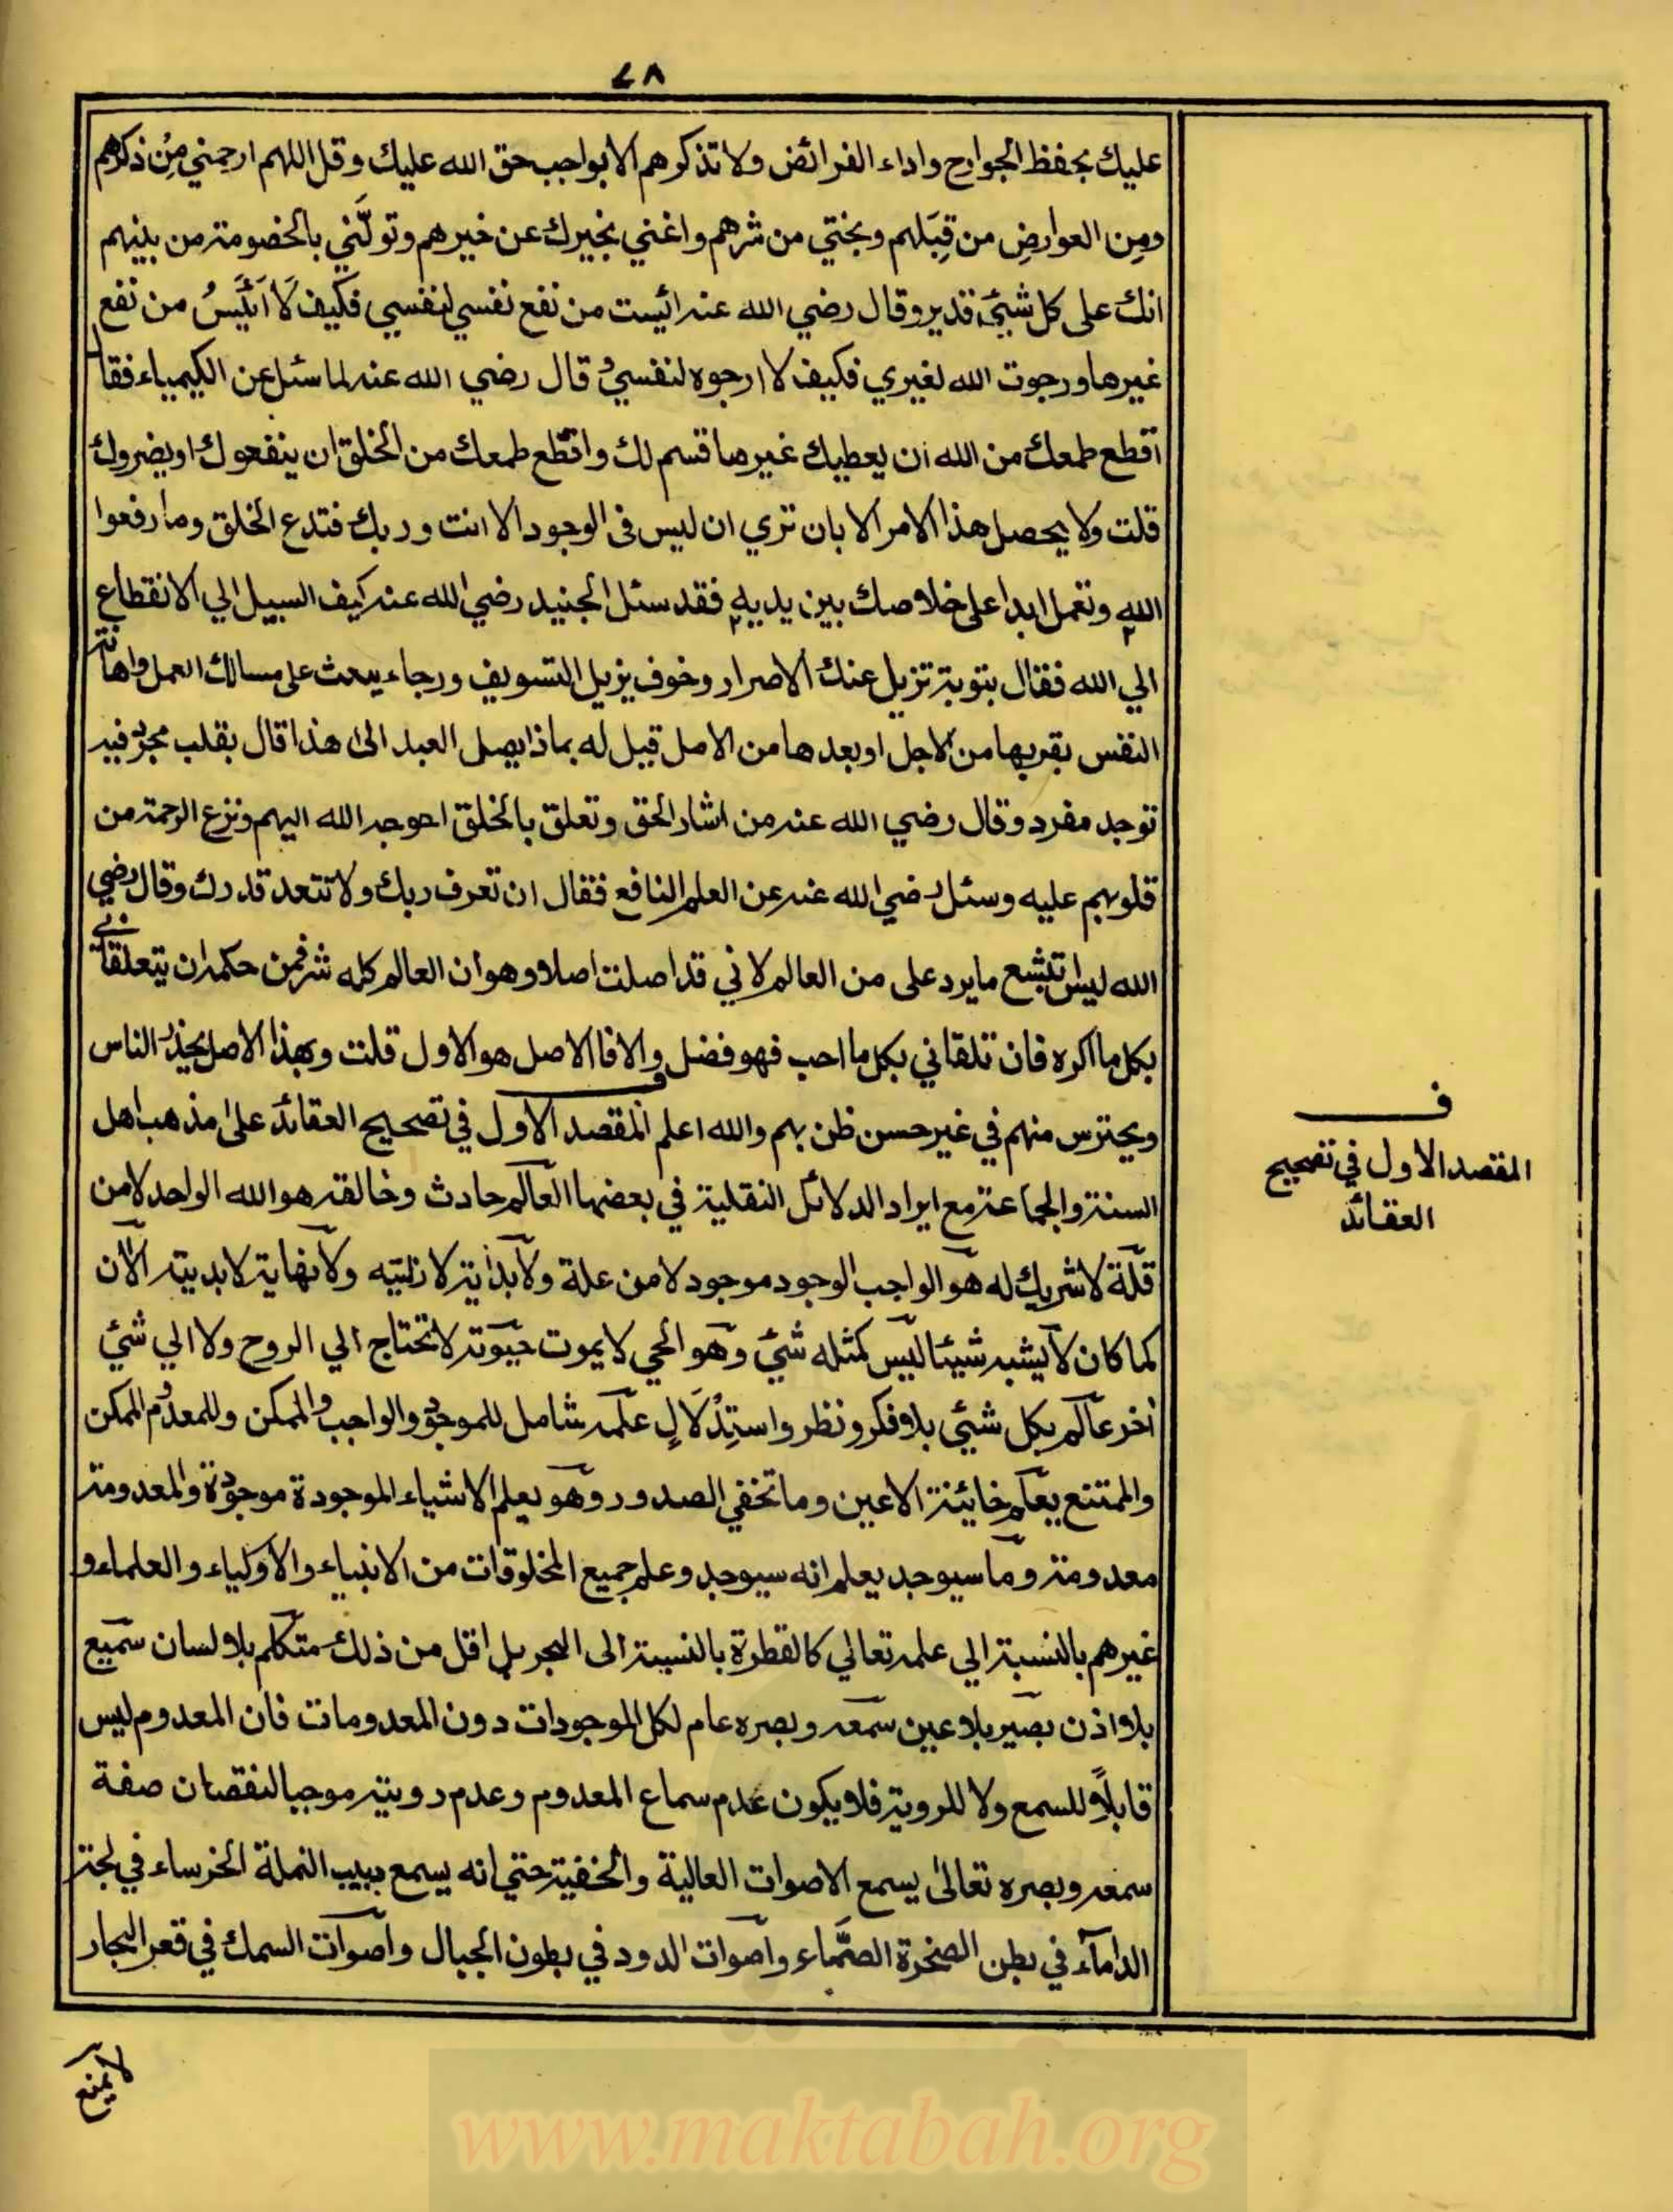 ٤٨
عليك بحفظ الجوارح واداء الفرائض ولا تذكرهم الا بواجب حق الله عليك وقل اللهم ارحمني مِن ذكرهم
ومِن العوارضِ من قِبَلهم ونجني من شرهم واغنني بخيرك عن خيرهم وتولَّني بالخصومة من بينهم
انك على كل شيئ قدير وقال رضي الله عنه ائيست من نفع نفسي لنفسي فكيف لَا اَئيَسُ من نفع
غيرها ورجوت الله لغيري فكيف لا ارجوه لنفسي و قال رضي الله عنه لما سئل عن الكيمياء فقال
اقطع طمعك من الله ان يعطيك غير ما قسم لك واقطع طمعك من الخلق ان ينفعوك او يضروك
قلت ولا يحصل هذا الامر الا بان تري ان ليس فى الوجود الا انت وربك فتدع الخلق وما رفعوا
الله وتعمل ابدا على خلاصك بين يديه فقد سئل الجنيد رضي الله عنه كيف السبيل الي الانقطاع
الي الله فقال بتوبة تزيل عنك الاصرار وخوف يزيل التسويف ورجاء يبعث على مسالك العمل واهانة
النفس بقربها من الاجل اوبعدها من الامل قيل له بماذا يصل العبد الى هذا قال بقلب مجرد فيه
توحد مفرد وقال رضي الله عنه من اشار الحق وتعلق بالخلق احوجه الله اليهم ونزع الرحمة من
قلوبهم عليه وسئل رضي الله عنه عن العلم النافع فقال ان تعرف ربك ولا تتعد قدرك وقال رضي
الله ليس تبشع ما يرد على من العالم لاني قد اصلت اصلا وهو ان العالم كله شر فمن حكمه ان يتعلقاني
بكل ما اكره فان تلقاني بكل ما احب فهو فضل والا فالاصل هو الاول قلت وبهذا الاصل يحذر الناس
ويحترس منهم في غير حسن ظن بهم والله اعلم المقصد الاول في تصحيح العقائد على مذهب اهل
السنة والجماعة مع ايراد الدلائل النقلية في بعضها العالم حادث وخالقه هو الله الواحد لا من
قلّة لا شريك له هو الواجب الوجود موجود لا من علة ولا بداية لازليته ولا نهاية لابديته الآن
كما كان لا يشبه شيئا ليس كمثله شيئ وهو الحي لا يموت حيوته لا تحتاج الي الروح ولا الي شيئ
اٰخر عالم بكل شيئ بلا فكر ونظر واستِدْلَالٍ علمه شامل للموجود والواجب والممكن وللمعدوم الممكن
والممتنع يعلم خائينة الاعين وما تخفي الصدور وهو يعلم الاشياء الموجودة موجودة والمعدومة
معدومة وما سيوجد يعلم انه سيوجد وعلم جميع المخلوقات من الانبياء والاولياء والعلماء و
غيرهم بالنسبة الي علمه تعالي كالقطرة بالنسبة الى البحر بل اقل من ذلك متكلم بلا لسان سميع
بلا اذن بصير بلا عين سمعه وبصره عام لكل الموجودات دون المعدومات فان المعدوم ليس
قابلاً للسمع ولا للروية فلا يكون عدم سماع المعدوم وعدم رويته موجبا لنقصان صفة
سمعه وبصره تعالىٰ يسمع الاصوات العالية والخفية حتي انه يسمع دبيب النملة الخرساء في لجة
الدامآء في بطن الصخرة الصَّماء واصوات الدود في بطون الجبال واصوات السمك في قعر البحار
ف
المقصد الاول في تصحيح
العقائد
لا يمنع
www.maktabah.org